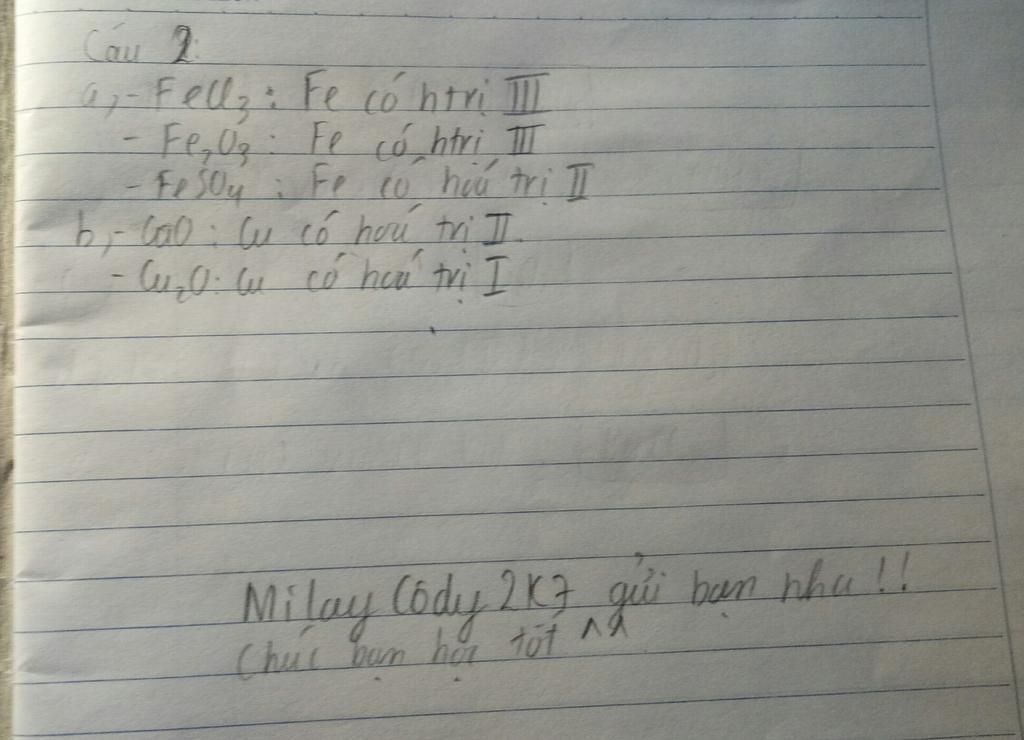 Câu 2:
a, - FeCl₃ : Fe có htrị III
- Fe₂O₃ : Fe có htrị III
- FeSO₄ : Fe có hoá trị II
b, - CuO : Cu có hoá trị II
- Cu₂O : Cu có hoá trị I
Milay Cody 2K7 gửi bạn nha !!
Chúc bạn học tốt ^^